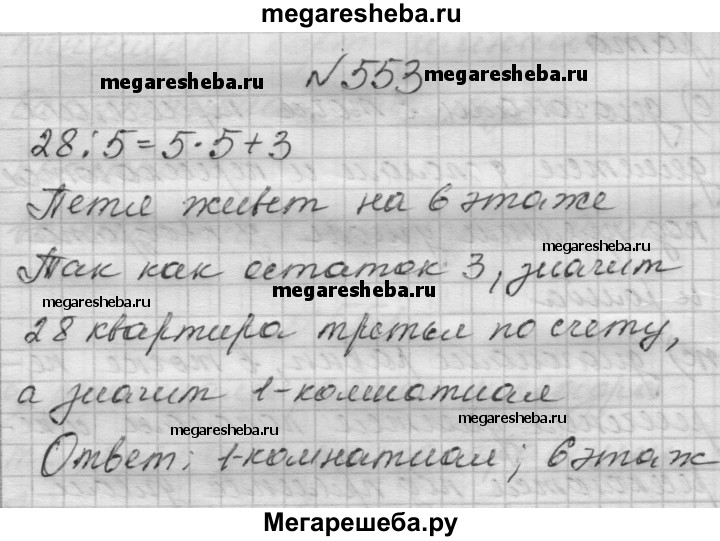 megaresheba.ru
megaresheba.ru №553 megaresheba.ru
28:5=5·5+3
Петя живет на 6 этаже
megaresheba.ru
Так как остаток 3, значит
megaresheba.ru megaresheba.ru
28 квартира третья по счету,
а значит 1-комнатная
megaresheba.ru megaresheba.ru
Ответ: 1-комнатная; 6 этаж
Мегарешеба.ру